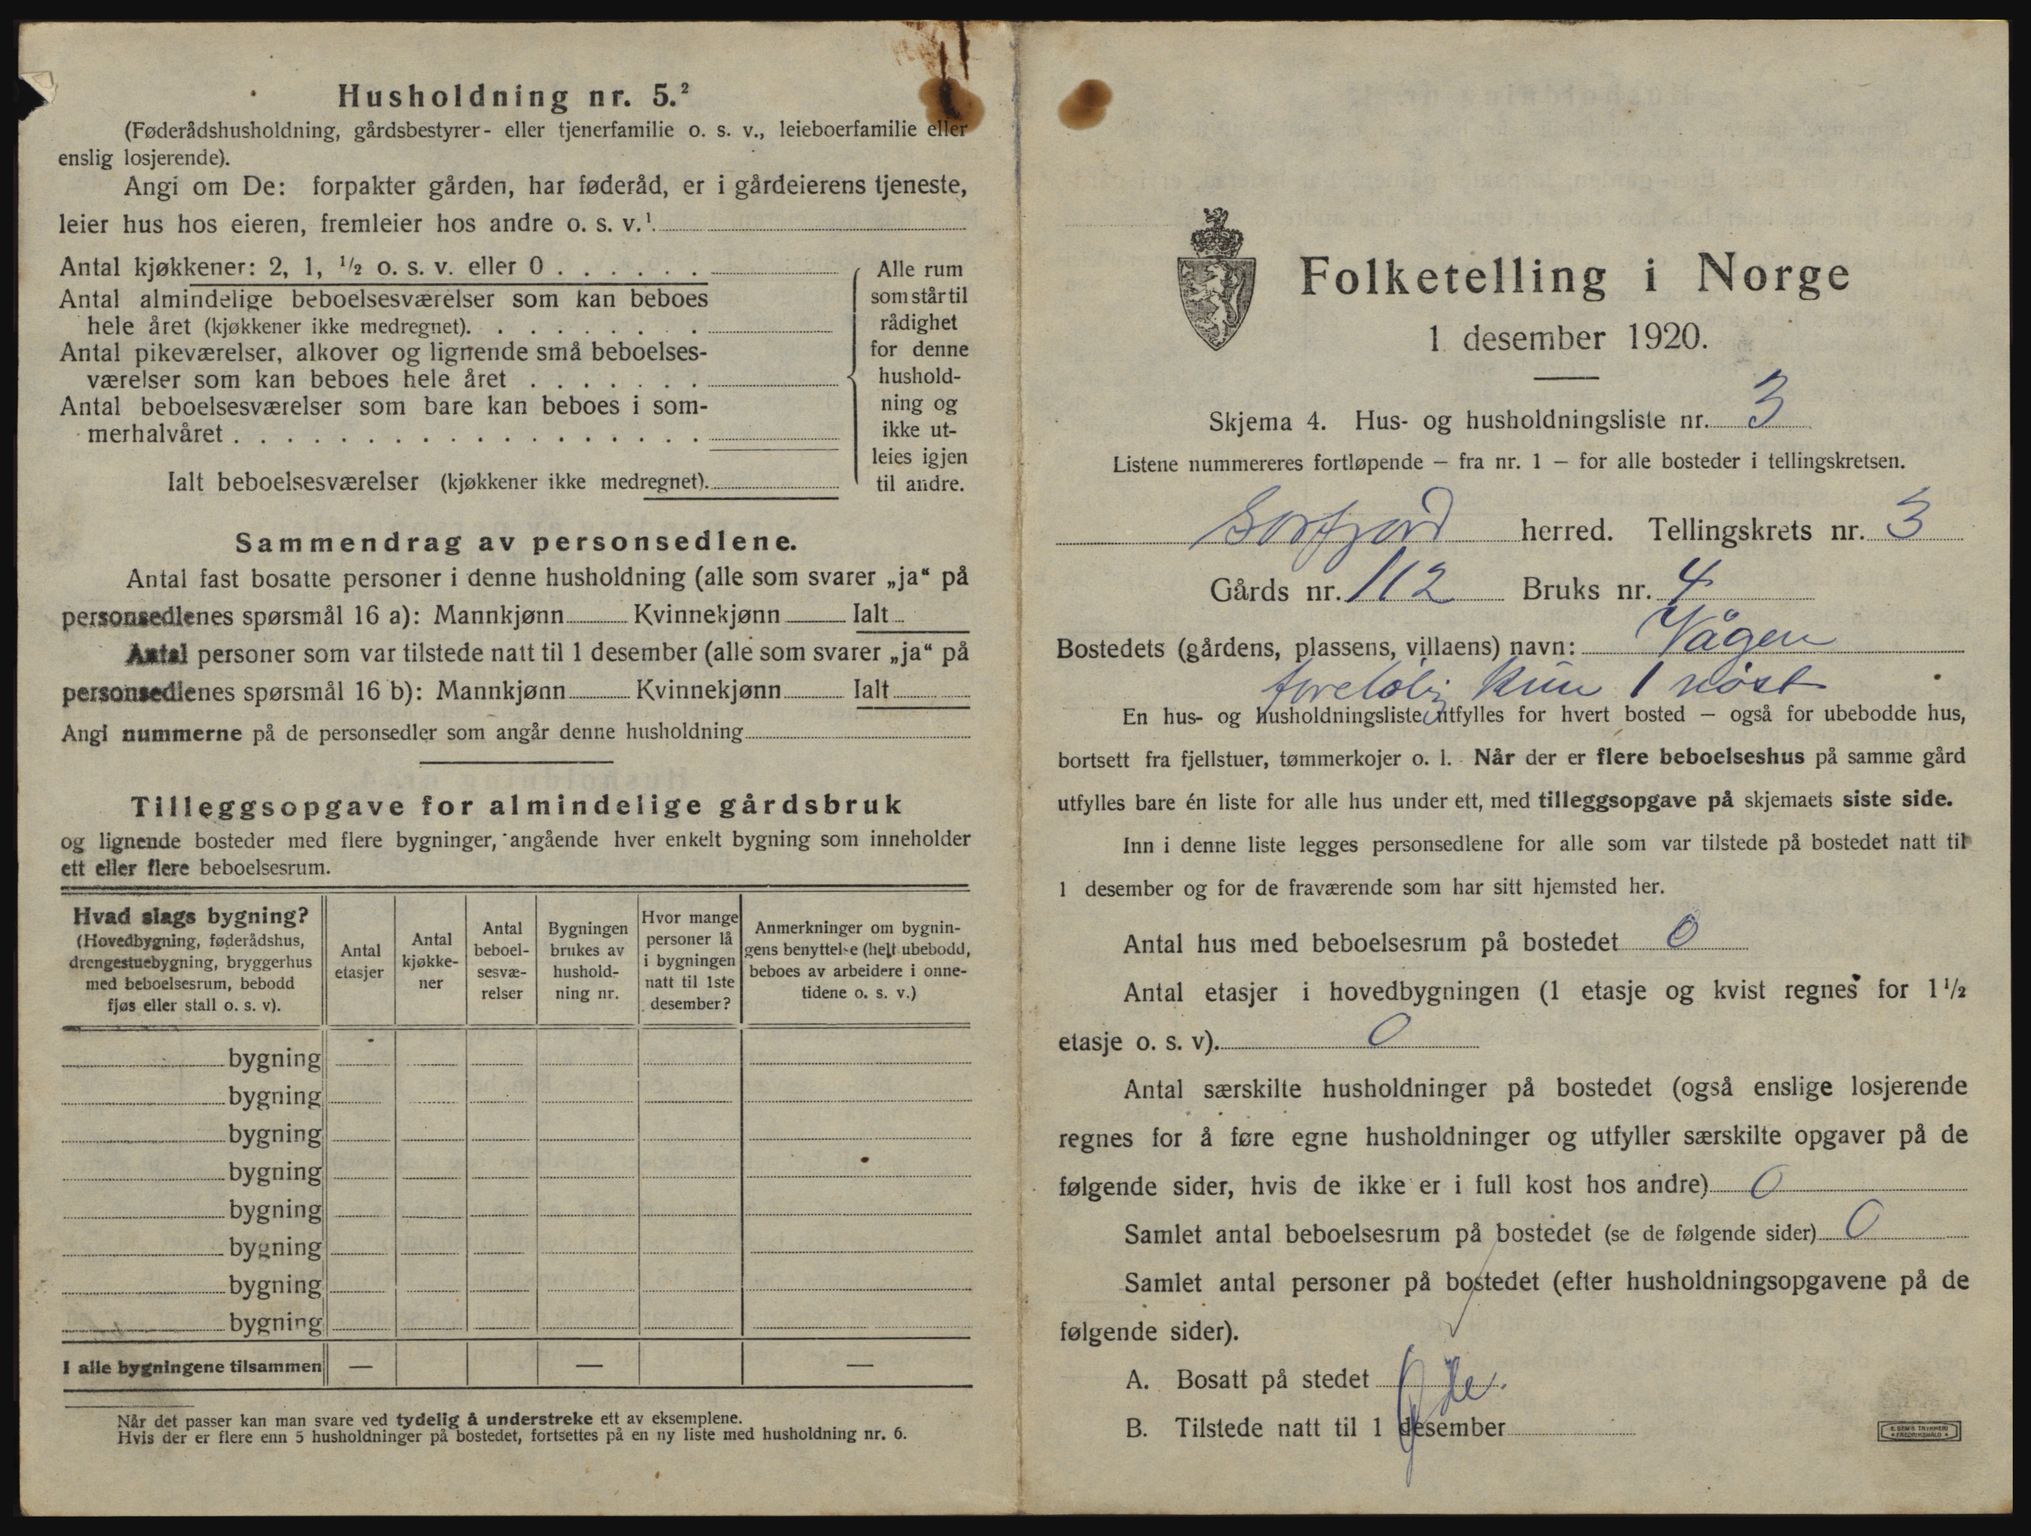 Husholdning nr. 5.²
(Føderådshusholdning, gårdsbestyrer- eller tjenerfamilie o. s. v., leieboerfamilie eller
enslig losjerende).
Angi om De: forpakter gården, har føderåd, er i gårdeierens tjeneste,
leier hus hos eieren, fremleier hos andre o. s. v.¹
Antal kjøkkener: 2, 1, ½ o. s. v. eller 0 . . . . . .
Antal almindelige beboelsesværelser som kan beboes
hele året (kjøkkener ikke medregnet). . . . . . . . .
Antal pikeværelser, alkover og lignende små beboelses-
værelser som kan beboes hele året . . . . . . .
Antal beboelsesværelser som bare kan beboes i som-
merhalvåret . . . . . . . . . . . . . . . . . .
Ialt beboelsesværelser (kjøkkener ikke medregnet).
Alle rum
som står til
rådighet
for denne
hushold-
ning og
ikke ut-
leies igjen
til andre.
Sammendrag av personsedlene.
Antal fast bosatte personer i denne husholdning (alle som svarer „ja“ på
personsedlenes spørsmål 16 a): Mannkjønn Kvinnekjønn Ialt
Antal personer som var tilstede natt til 1 desember (alle som svarer „ja“ på
personsedlenes spørsmål 16 b): Mannkjønn Kvinnekjønn Ialt
Angi nummerne på de personsedler som angår denne husholdning
Tilleggsopgave for almindelige gårdsbruk
og lignende bosteder med flere bygninger, angående hver enkelt bygning som inneholder
ett eller flere beboelsesrum.
Hvad slags bygning?
(Hovedbygning, føderådshus,
drengestuebygning, bryggerhus
med beboelsesrum, bebodd
fjøs eller stall o. s. v).
Antal
etasjer
Antal
kjøkke-
ner
Antal
beboel-
sesvæ-
relser
Bygningen
brukes av
hushold-
ning nr.
Hvor mange
personer lå
i bygningen
natt til 1ste
desember?
Anmerkninger om bygnin-
gens benyttelse (helt ubebodd,
beboes av arbeidere i onne-
tidene o. s. v.)
bygning
bygning
bygning
bygning
bygning
bygning
bygning
bygning
I alle bygningene tilsammen — — —
Når det passer kan man svare ved tydelig å understreke ett av eksemplene.
Hvis der er flere enn 5 husholdninger på bostedet, fortsettes på en ny liste med husholdning nr. 6.
Folketelling i Norge
1 desember 1920.
Skjema 4. Hus- og husholdningsliste nr. 3
Listene nummereres fortløpende – fra nr. 1 – for alle bosteder i tellingskretsen.
Sørfjord herred. Tellingskrets nr. 3
Gårds nr. 112 Bruks nr. 4
Bostedets (gårdens, plassens, villaens) navn: Vågen
foreløbig kun 1 nøst
En hus- og husholdningsliste utfylles for hvert bosted – også for ubebodde hus,
bortsett fra fjellstuer, tømmerkojer o. l. Når der er flere beboelseshus på samme gård
utfylles bare én liste for alle hus under ett, med tilleggsopgave på skjemaets siste side.
Inn i denne liste legges personsedlene for alle som var tilstede på bostedet natt til
1 desember og for de fraværende som har sitt hjemsted her.
Antal hus med beboelsesrum på bostedet 0
Antal etasjer i hovedbygningen (1 etasje og kvist regnes for 1½
etasje o. s. v). 0
Antal særskilte husholdninger på bostedet (også enslige losjerende
regnes for å føre egne husholdninger og utfyller særskilte opgaver på de
følgende sider, hvis de ikke er i full kost hos andre) 0
Samlet antal beboelsesrum på bostedet (se de følgende sider) 0
Samlet antal personer på bostedet (efter husholdningsopgavene på de
følgende sider).
A. Bosatt på stedet Øde.
B. Tilstede natt til 1 desember